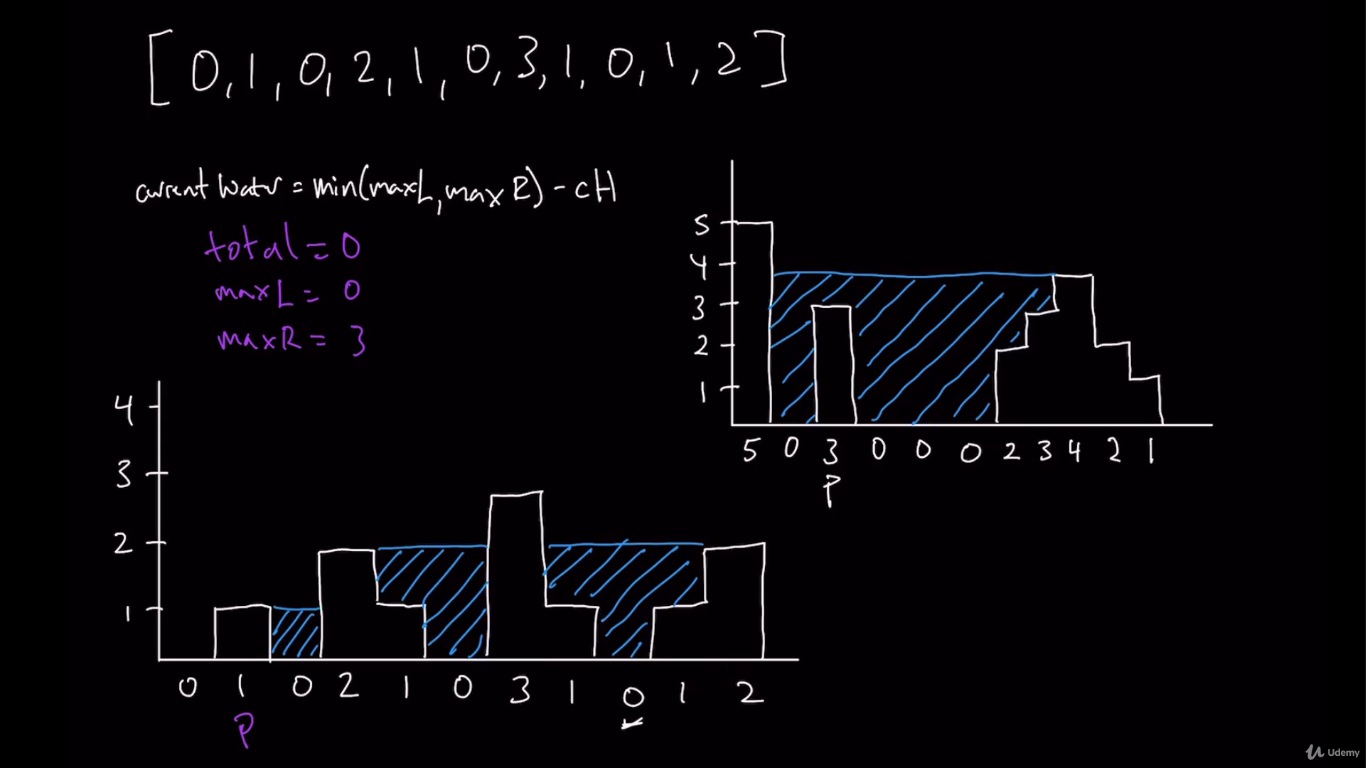 [0,1,0,2,1,0,3,1,0,1,2]
current Water = min(maxL, maxR) - cH
total = 0
maxL = 0
maxR = 3
5
4
3
2
1
5 0 3 0 0 0 2 3 4 2 1
P
4
3
2
1
0 1 0 2 1 0 3 1 0 1 2
P
Udemy